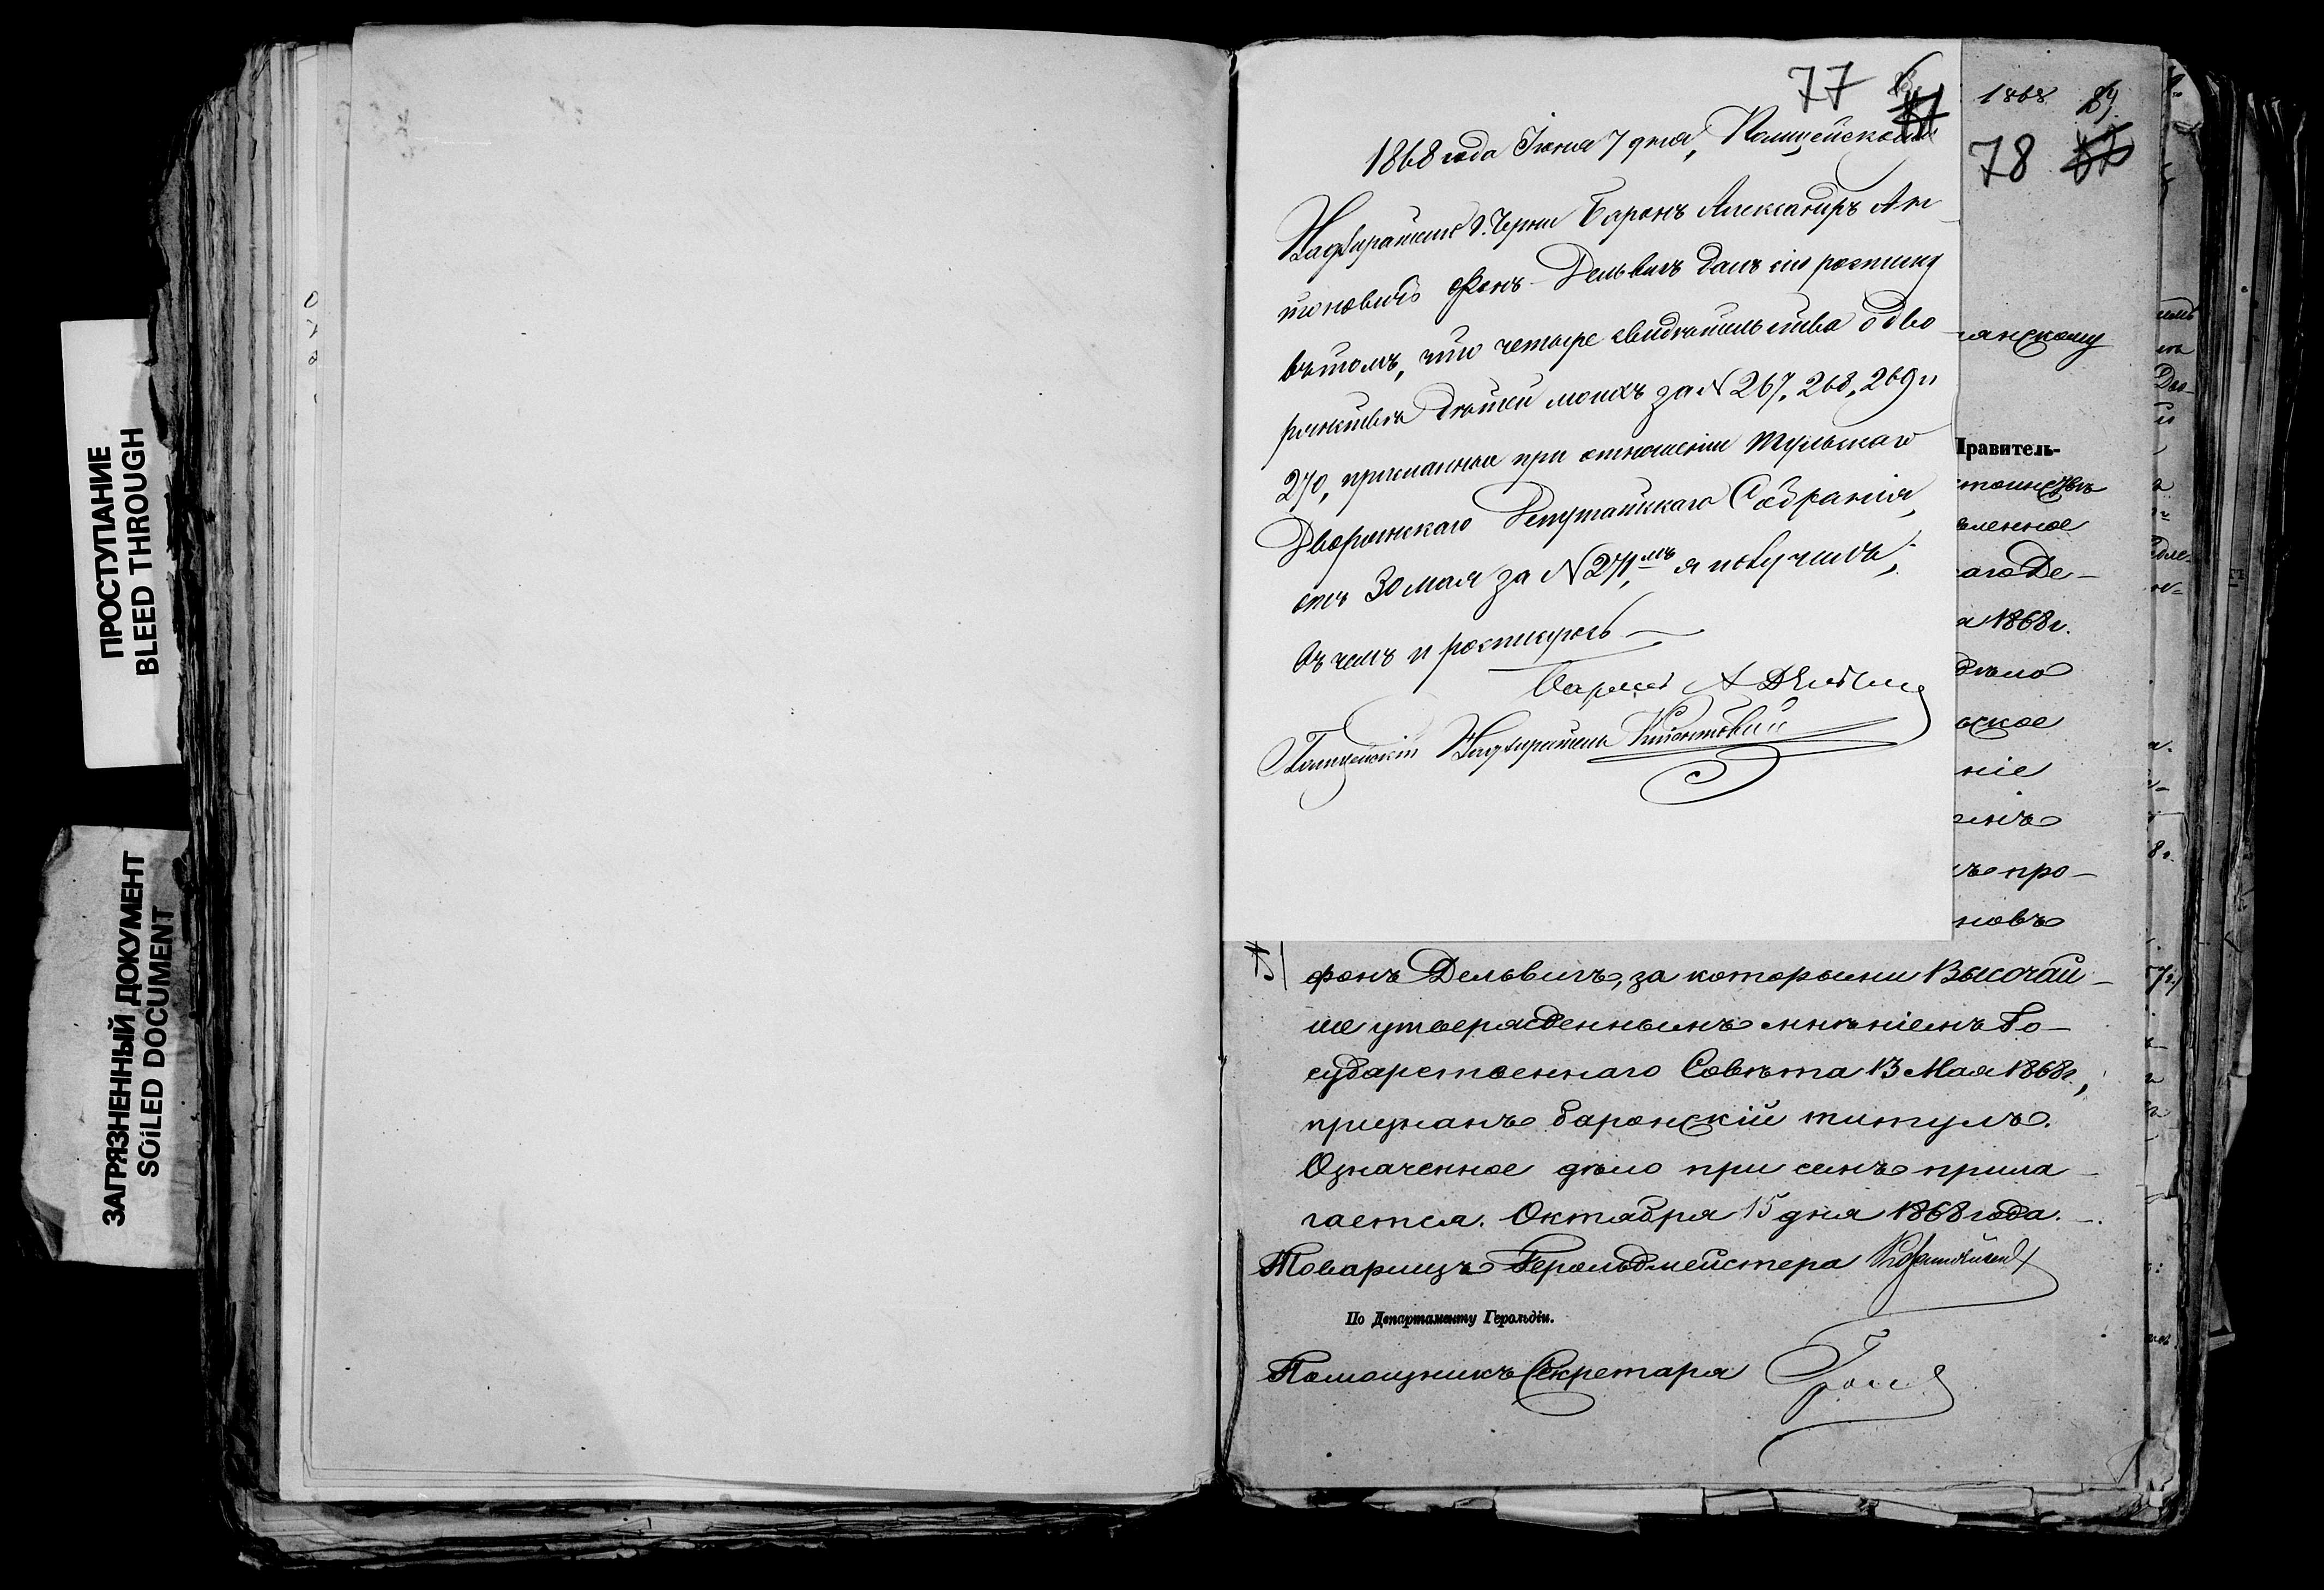 ПРОСТУПАНИЕ
BLEED THROUGH
ЗАГРЯЗНЕННЫЙ ДОКУМЕНТ
SOILED DOCUMENT
77
1868 года Іюня 7 дня, Полицейскому
Надзирателю г. Черни Баронъ Александръ Ан-
тоновичъ фонъ-Дельвигъ далъ сію росписку
въ томъ, что четыре свидѣтельства о дво-
рянствѣ дѣтей моихъ за N 267, 268, 269 и
270, присланныя при отношеніи Тульскаго
Дворянскаго Депутатскаго Собранія,
отъ 30 мая за N 271мъ, я получилъ,
въ чемъ и роспишусь
Баронъ А Дельвигъ
Полицейскій Надзиратель
1868
78
янскому
Правитель-
тоинствъ
вленное
аго Де-
а 1868 г.
дѣло
ское
ніе
ъ про-
новъ
фонъ Дельвигъ, за которыми Высочай-
ше утвержденнымъ мнѣніемъ Го-
сударственнаго Совѣта 13 Мая 1868 г.,
признанъ баронскій титулъ.
Означенное дѣло при семъ прила-
гается. Октября 15 дня 1868 года.
Товарищъ Герольдмейстера
По Департаменту Герольдіи.
Помощникъ Секретаря